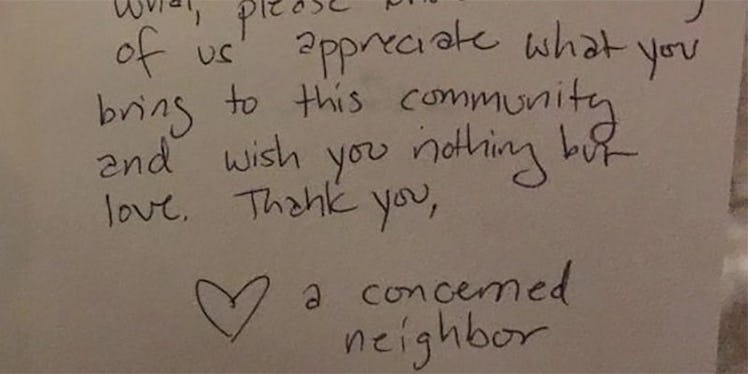 what, please
of us appreciate what you
bring to this community
and wish you nothing but
love. Thank you,
♡ a concerned
neighbor